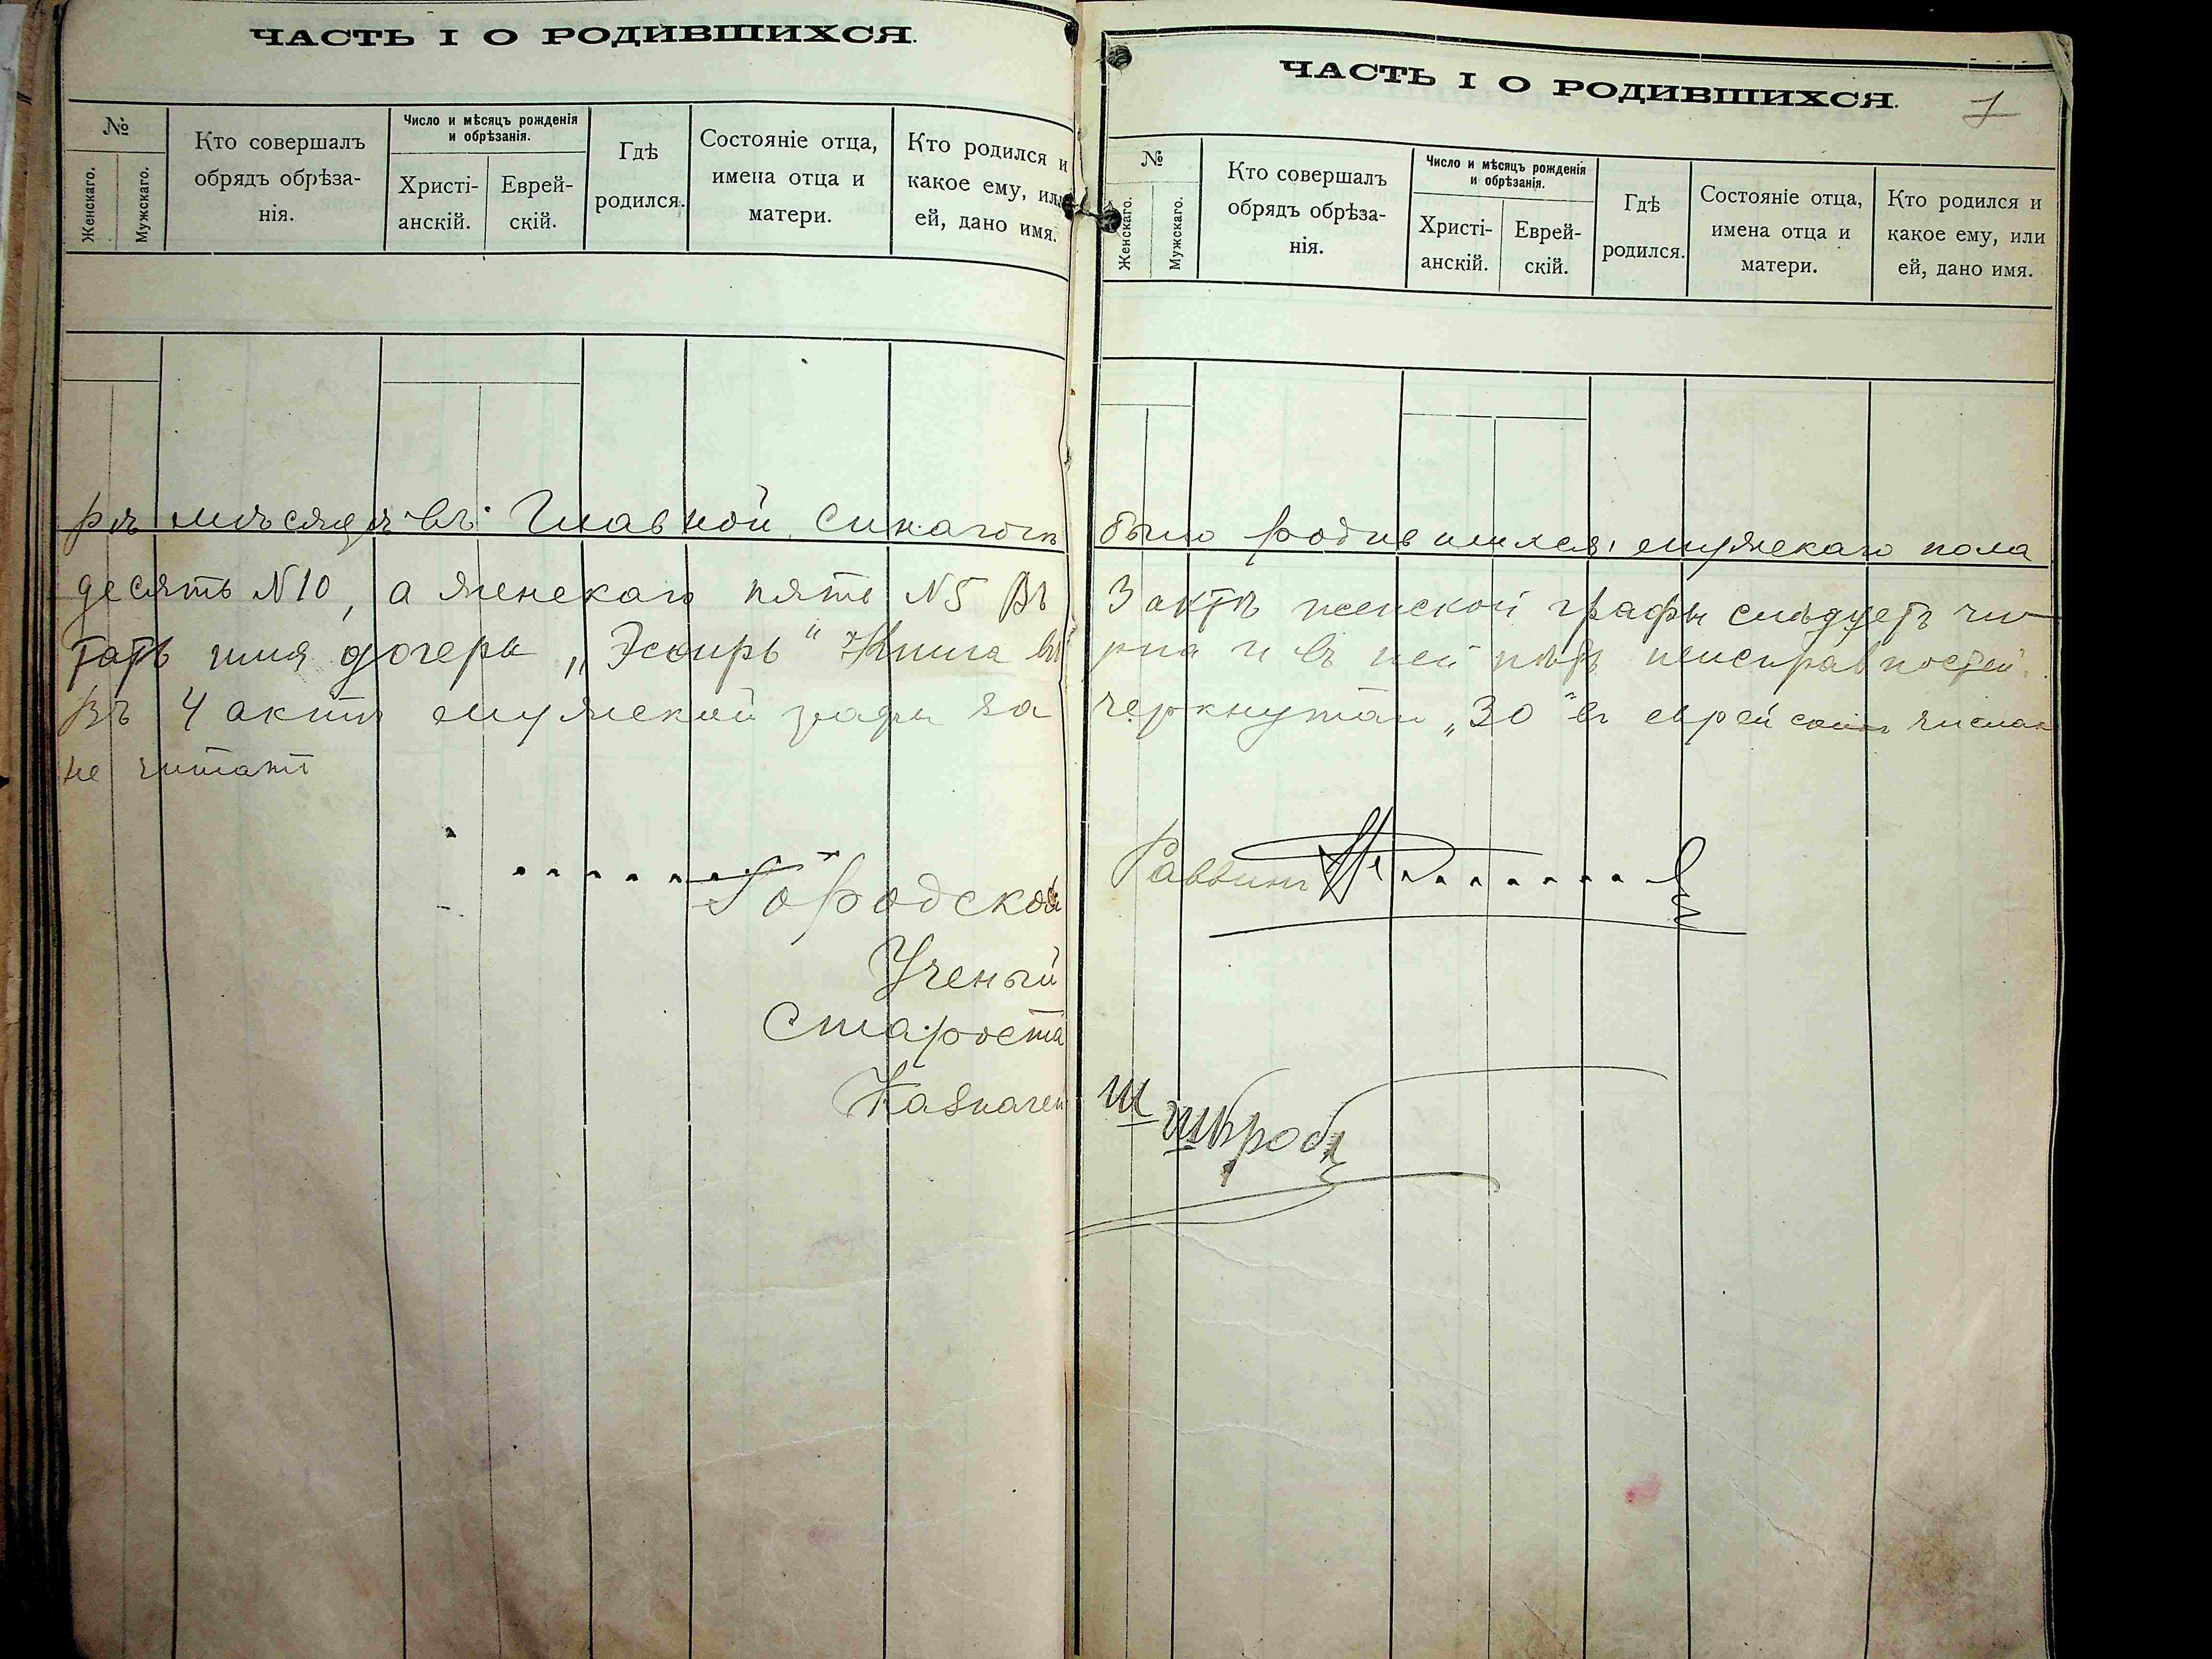 ЧАСТЬ I О РОДИВШИХСЯ.
№
Женскаго.
Мужскаго.
Кто совершалъ
обрядъ обрѣза-
нія.
Число и мѣсяцъ рожденія
и обрѣзанія.
Христі-
анскій.
Еврей-
скій.
Гдѣ
родился.
Состояніе отца,
имена отца и
матери.
Кто родился и
какое ему, или
ей, дано имя.
ЧАСТЬ I О РОДИВШИХСЯ.
7
№
Женскаго.
Мужскаго.
Кто совершалъ
обрядъ обрѣза-
нія.
Число и мѣсяцъ рожденія
и обрѣзанія.
Христі-
анскій.
Еврей-
скій.
Гдѣ
родился.
Состояніе отца,
имена отца и
матери.
Кто родился и
какое ему, или
ей, дано имя.
рѣ мѣсяцѣ въ Главной Синагогѣ было родившихся, мужскаго пола
десять №10, а женскаго пять №5 Въ 3 актѣ женской графы слѣдуетъ чи-
тать имя дочери „Эсѳирь“ Книга вѣрна и въ ней нѣтъ неисправностей.
Въ 4 актѣ мужской графы зачеркнутаи „30“ въ еврейскомъ
не читать
Городской Раввинъ
Ученый
Староста
Казначей Ш Шкробъ